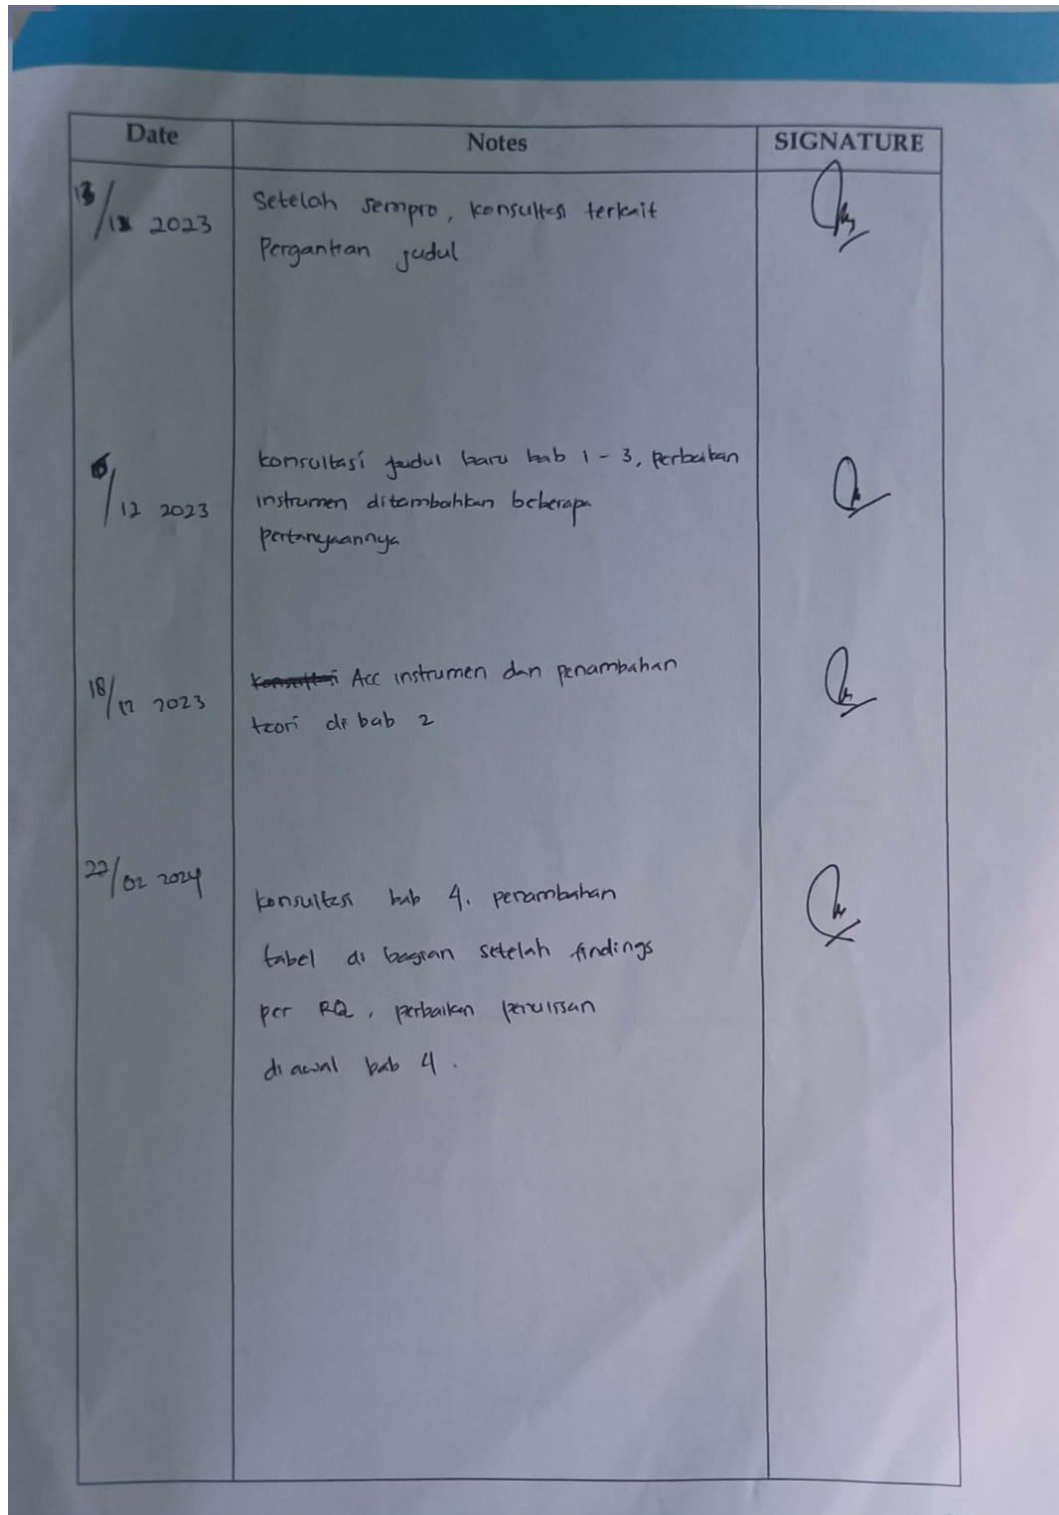 Date Notes SIGNATURE
Setelah sempro, konsultasi terkait
Pergantian judul
2023
konsultasi judul baru bab 1 - 3, perbaikan
instrumen ditambahkan beberapa
pertanyaannya
/12 2023
Acc instrumen dan penambahan
teori di bab 2
18/12 2023
22/02 2024
konsultasi bab 4. penambahan
tabel di bagian setelah findings
per RQ, perbaikan penulisan
di awal bab 4.